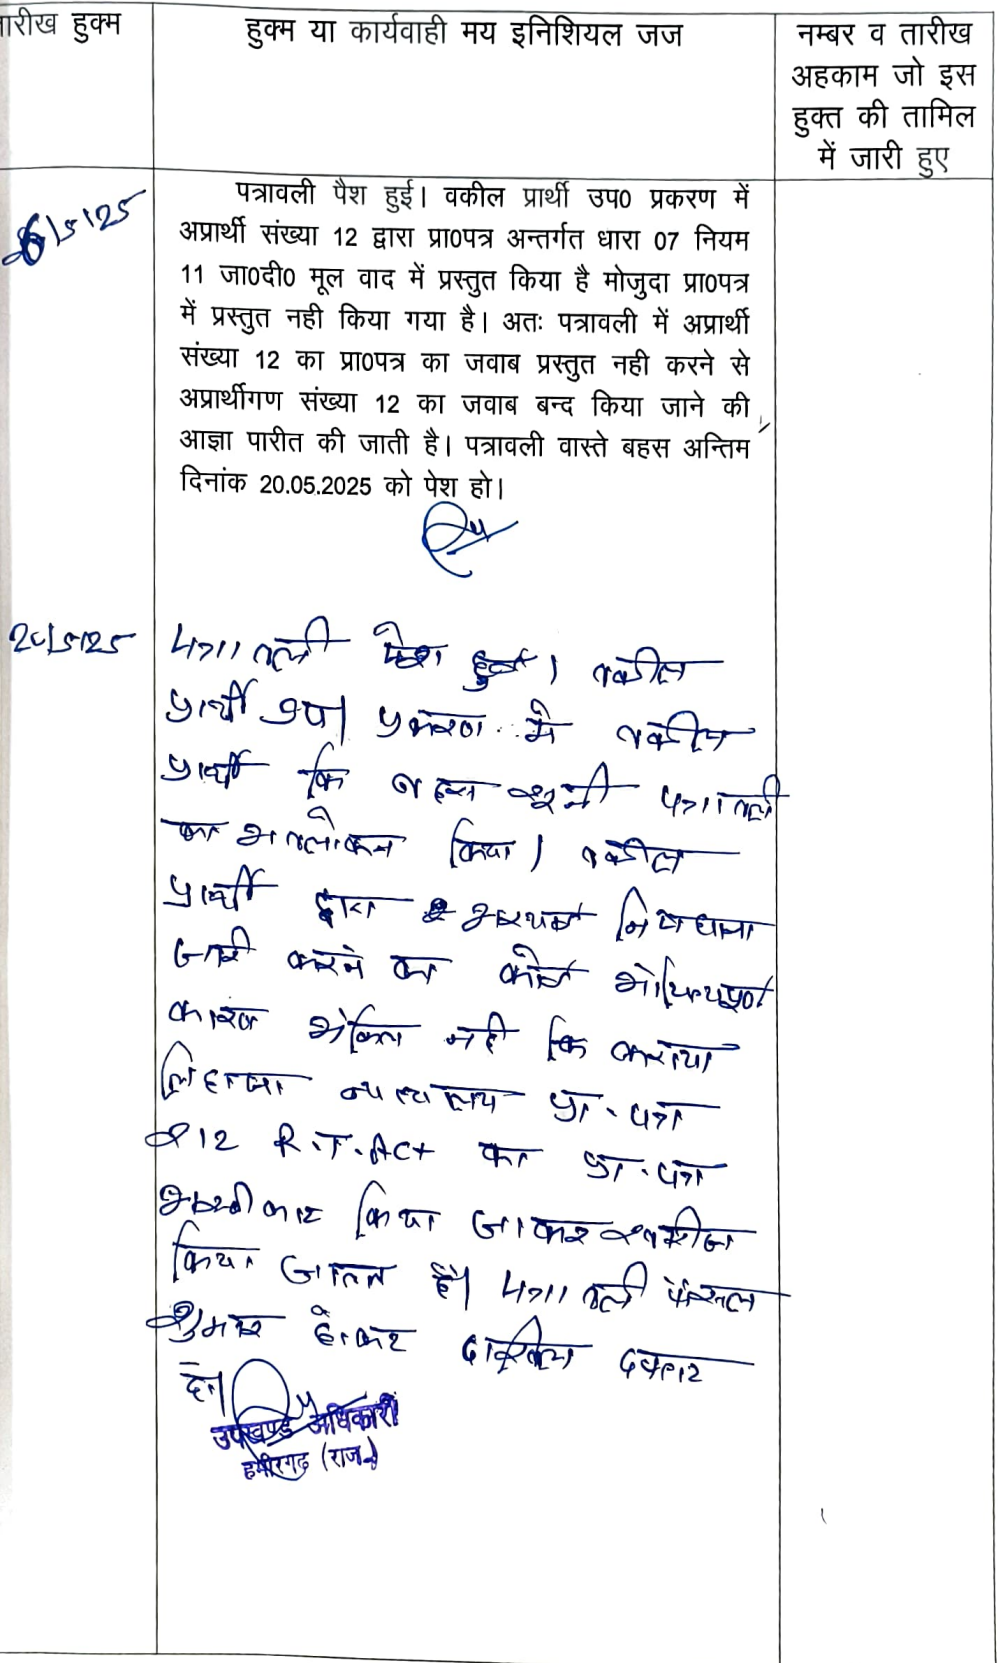 तारीख हुक्म
हुक्म या कार्यवाही मय इनिशियल जज
नम्बर व तारीख
अहकाम जो इस
हुक्त की तामिल
में जारी हुए
6/5/25
पत्रावली पैश हुई। वकील प्रार्थी उप0 प्रकरण में
अप्रार्थी संख्या 12 द्वारा प्रा0पत्र अन्तर्गत धारा 07 नियम
11 जा0दी0 मूल वाद में प्रस्तुत किया है मोजुदा प्रा0पत्र
में प्रस्तुत नही किया गया है। अतः पत्रावली में अप्रार्थी
संख्या 12 का प्रा0पत्र का जवाब प्रस्तुत नही करने से
अप्रार्थीगण संख्या 12 का जवाब बन्द किया जाने की
आज्ञा पारीत की जाती है। पत्रावली वास्ते बहस अन्तिम
दिनांक 20.05.2025 को पेश हो।
20/5/25
पत्रावली पेश हुई। वकील
प्रार्थी उप। प्रकरण में वकील
प्रार्थी कि बहस सुनी पत्रावली
का अवलोकन किया। वकील
प्रार्थी द्वारा अस्थाई निषेधाज्ञा
जारी करने का कोई
कारण अंकित नही कराया
लिहाजा न्यायालय प्रा. पत्र
212 R.T.Act का प्रा. पत्र
अस्वीकार किया जाकर खारीज
किया जाता है। पत्रावली फैसल
शुमार होकर दाखिल दफ्तर
हो।
उपखण्ड अधिकारी
हमीरगढ़ (राज.)